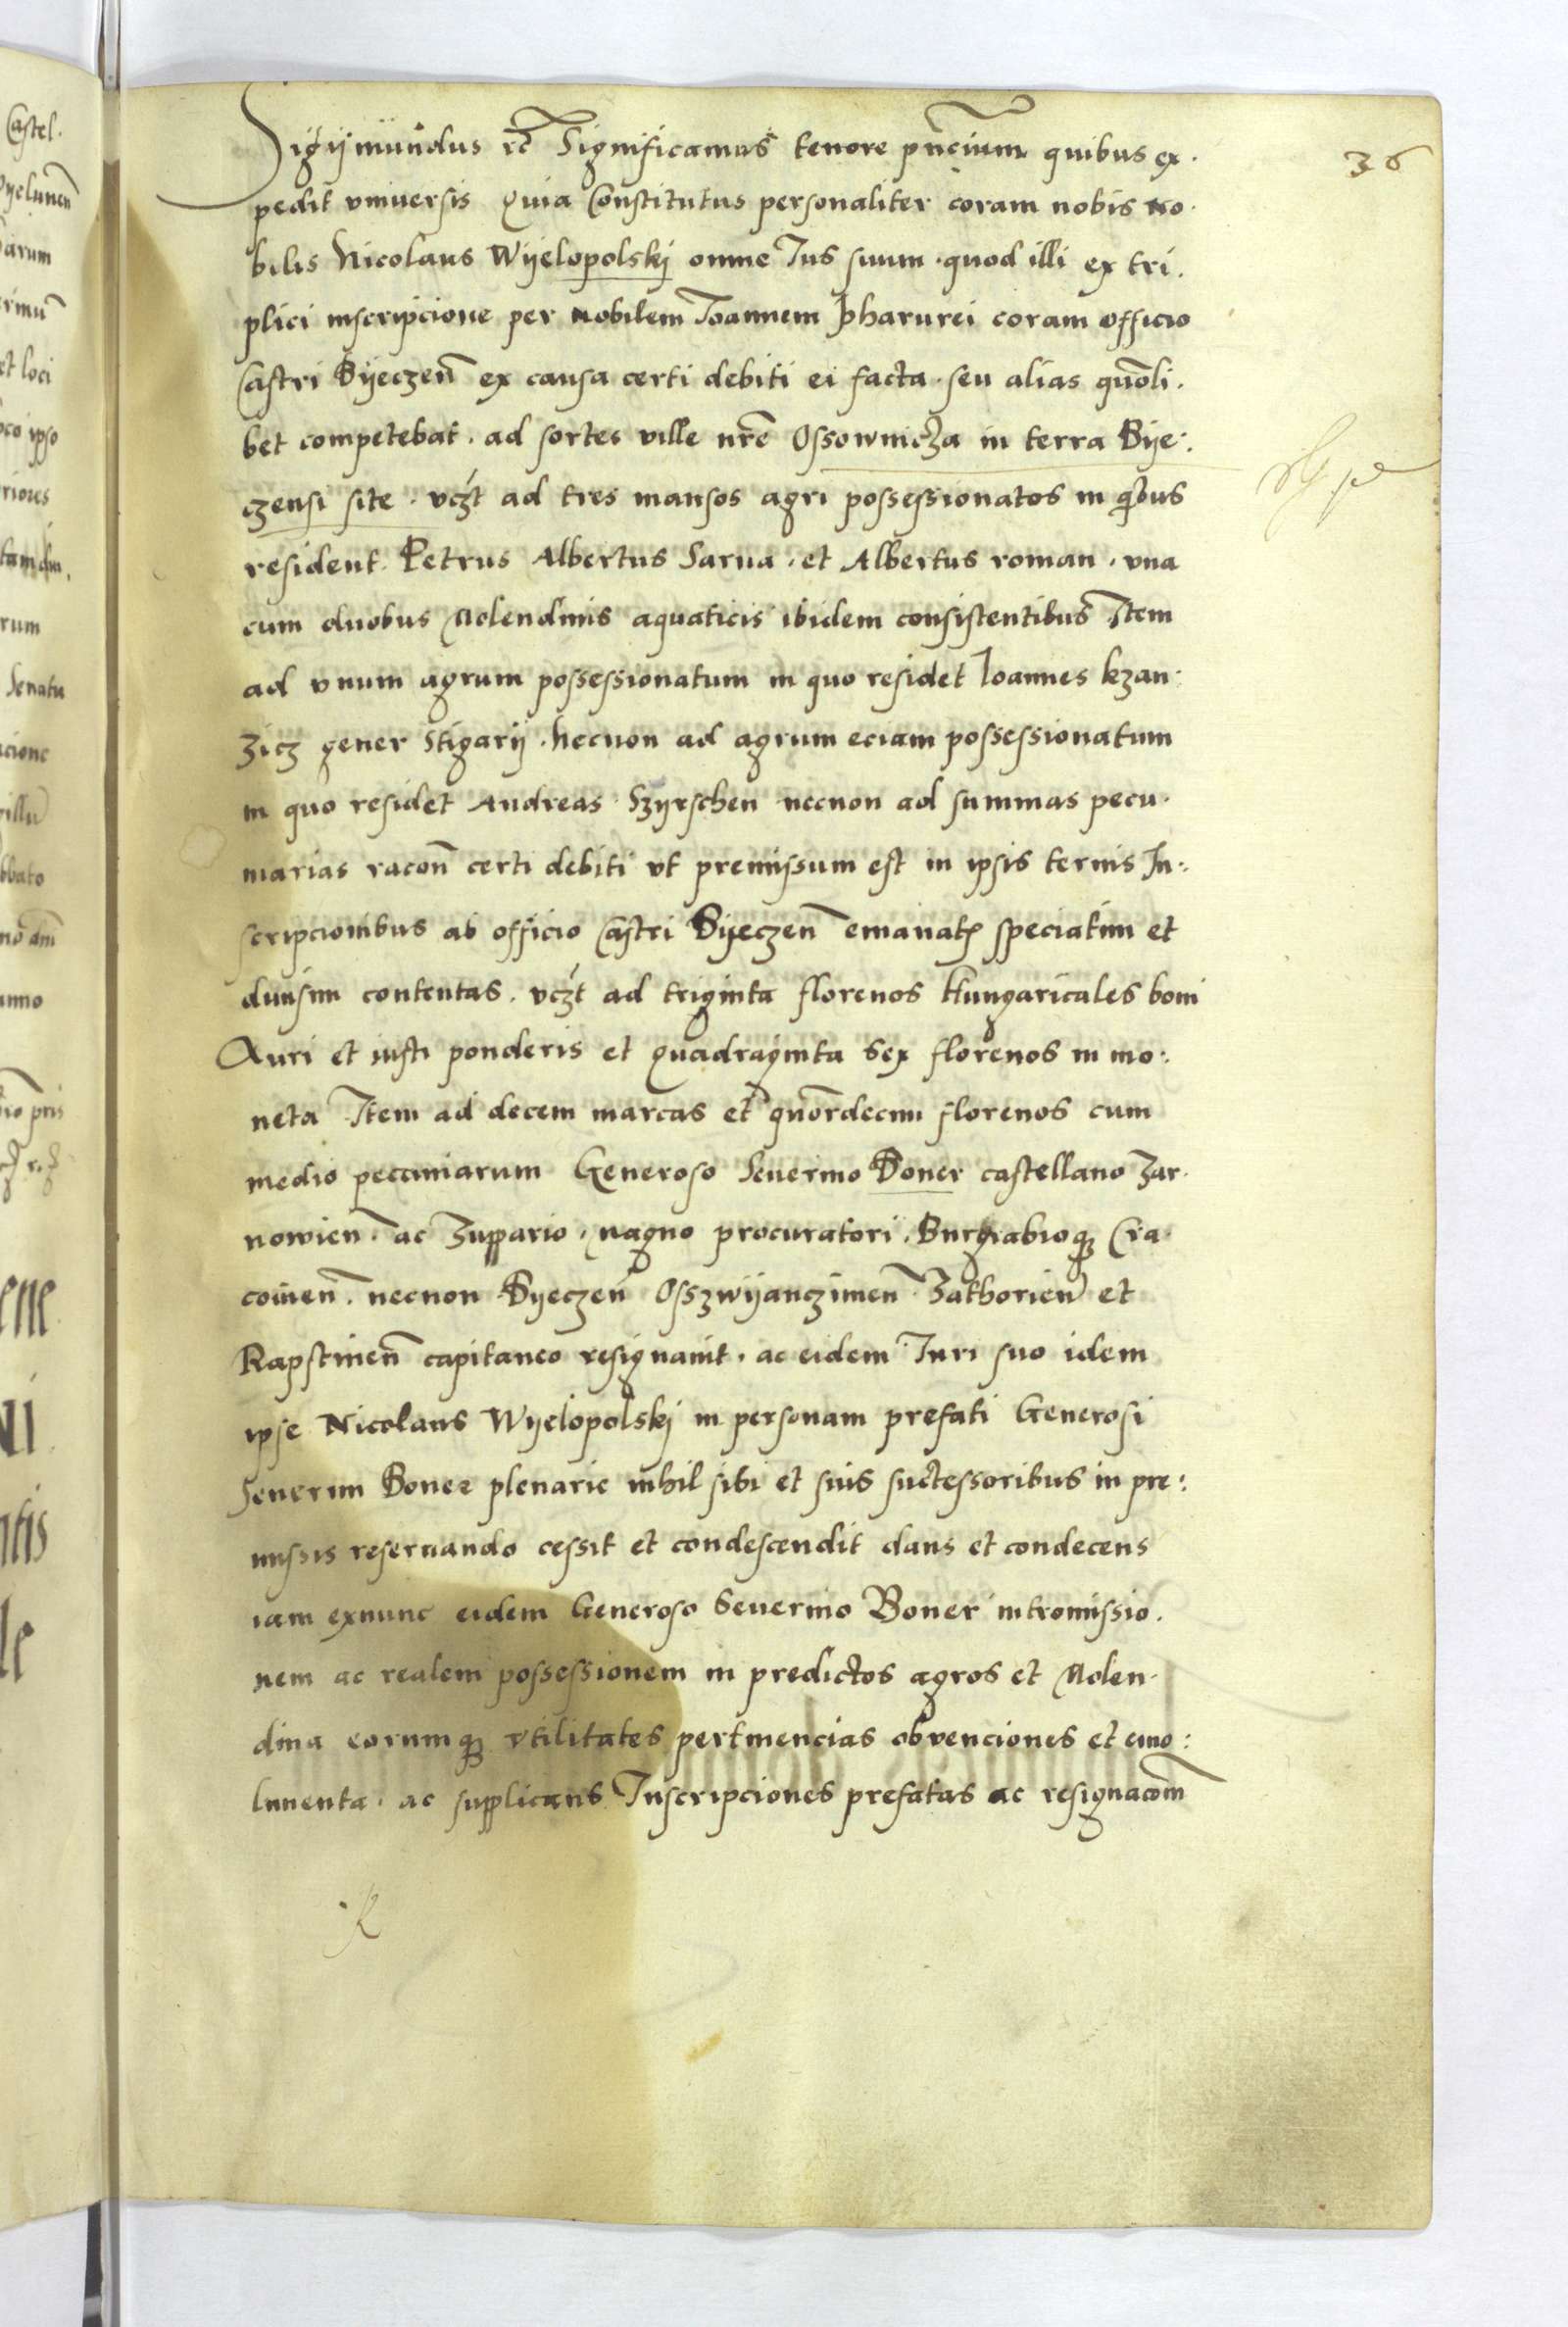 36
Sigijmundus rc̃ Significamus tenore pñcium quibus ex.
pedit vniuersis Quia Constitutus personaliter coram nobis no.
bilis Nicolaus Wijelopolskj omne Jus suum. quod illi ex tri.
plici inscripcione per nobilem Joannem Pharurei coram officio
Castri Bijeczeñ ex causa certi debiti ei facta. seu alias quõli.
bet competebat. ad sortes ville nrẽ Ossownicza in terra Bije:
czensi site. vczt ad tres mansos agri possessionatos in q̃bus
resident. Petrus Albertus Sarna. et Albertus roman. vna
cum duobus Molendinis aquaticis ibidem consistentibus Item
ad vnum agrum possessionatum in quo residet Joannes kzan.
zicz gener Stigarij. Necnon ad agrum eciam possessionatum
in quo residet Andreas Szijrschen necnon ad summas pecu.
niarias racoñ certi debiti vt premissum est in ipsis ternis In:
scripcionibus ab officio Castri Bijeczeñ emanatꝭ speciatim et
diuisim contentas. vczt ad triginta florenos Hungaricales boni
Auri et iusti ponderis et Quadraginta Sex florenos in mo:
neta Item ad decem marcas et quordecim florenos cum
medio pecuniarum Generoso Seuerino Boner castellano Zar.
nowien. ac Zuppario. magno procuratori. Burgrabioqꝫ Cra.
couieñ. necnon Bijeczeñ Osszwijanczimeñ Zathorieñ et
Rapstineñ capitaneo resignauit. ac eidem Juri suo idem
ipse Nicolaus Wijelopolskj in personam prefati Generosi
Seuerini Boner plenarie nihil sibi et suis successoribus in pre:
missis reseruando cessit et condescendit dans et condecens
iam exnunc eidem Generoso Seuerino Boner intromissio.
nem ac realem possessionem in predictos agros et Molen.
dina eorumqꝫ vtilitates pertinencias obvenciones et emo:
lumenta. ac supplicans Inscripciones prefatas ac resignacom̃